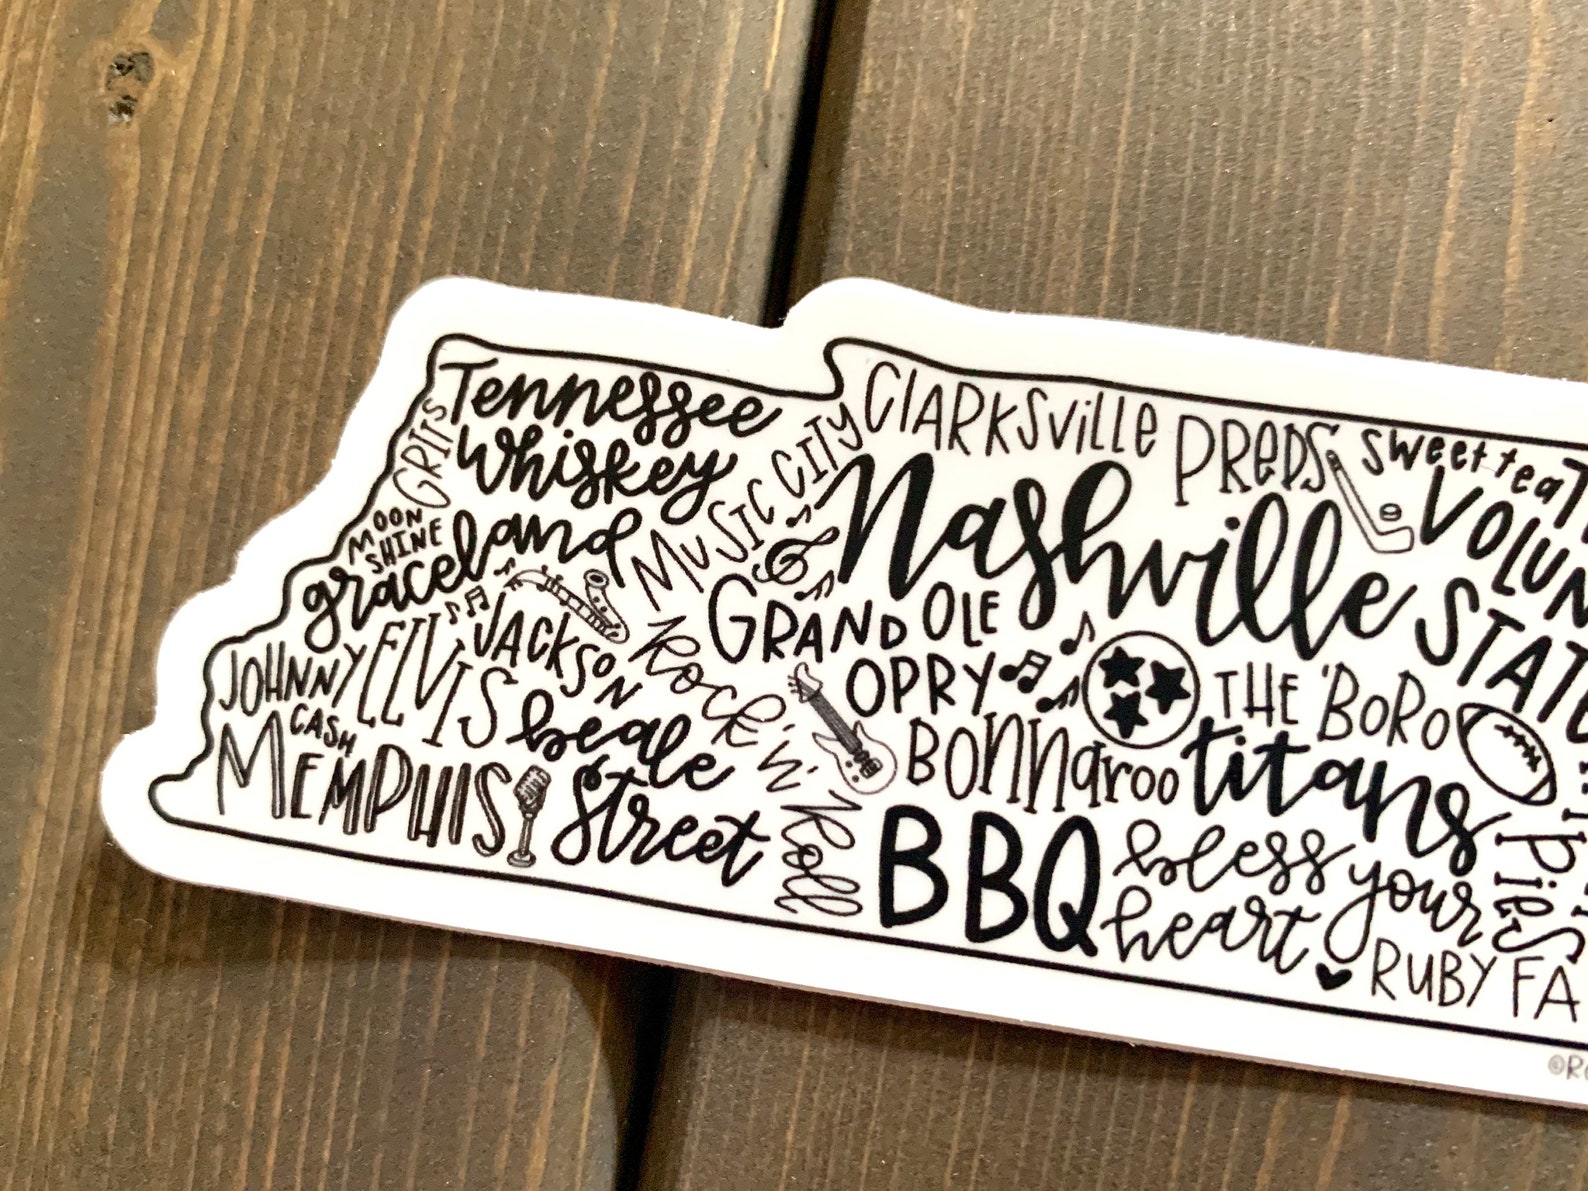 Tennessee
Whiskey
GRITS
MOON
SHINE
graceland
MUSIC CITY
JOHNNY
CASH
ELVIS
JACKSON
MEMPHIS
beale
Street
Rock 'n' Roll
CLARKSVILLE
PREDS
sweet tea
Nashville
VOLUN
STATE
GRAND OLE
OPRY
THE 'BORO
BONNAROO
titans
BBQ
bless your
heart
RUBY FA